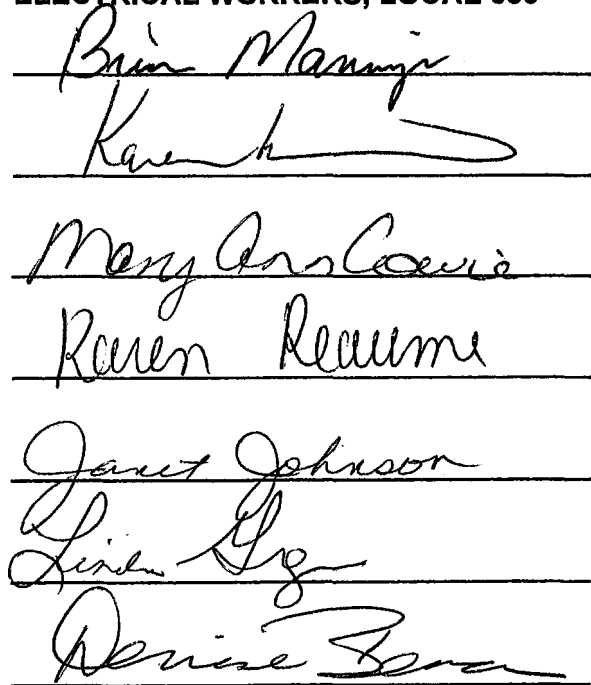 ELECTRICAL WORKERS, LOCAL 636
Brian Manning
Karen
Mary Ann Cowie
Karen Reaume
Janet Johnson
Linda
Denise